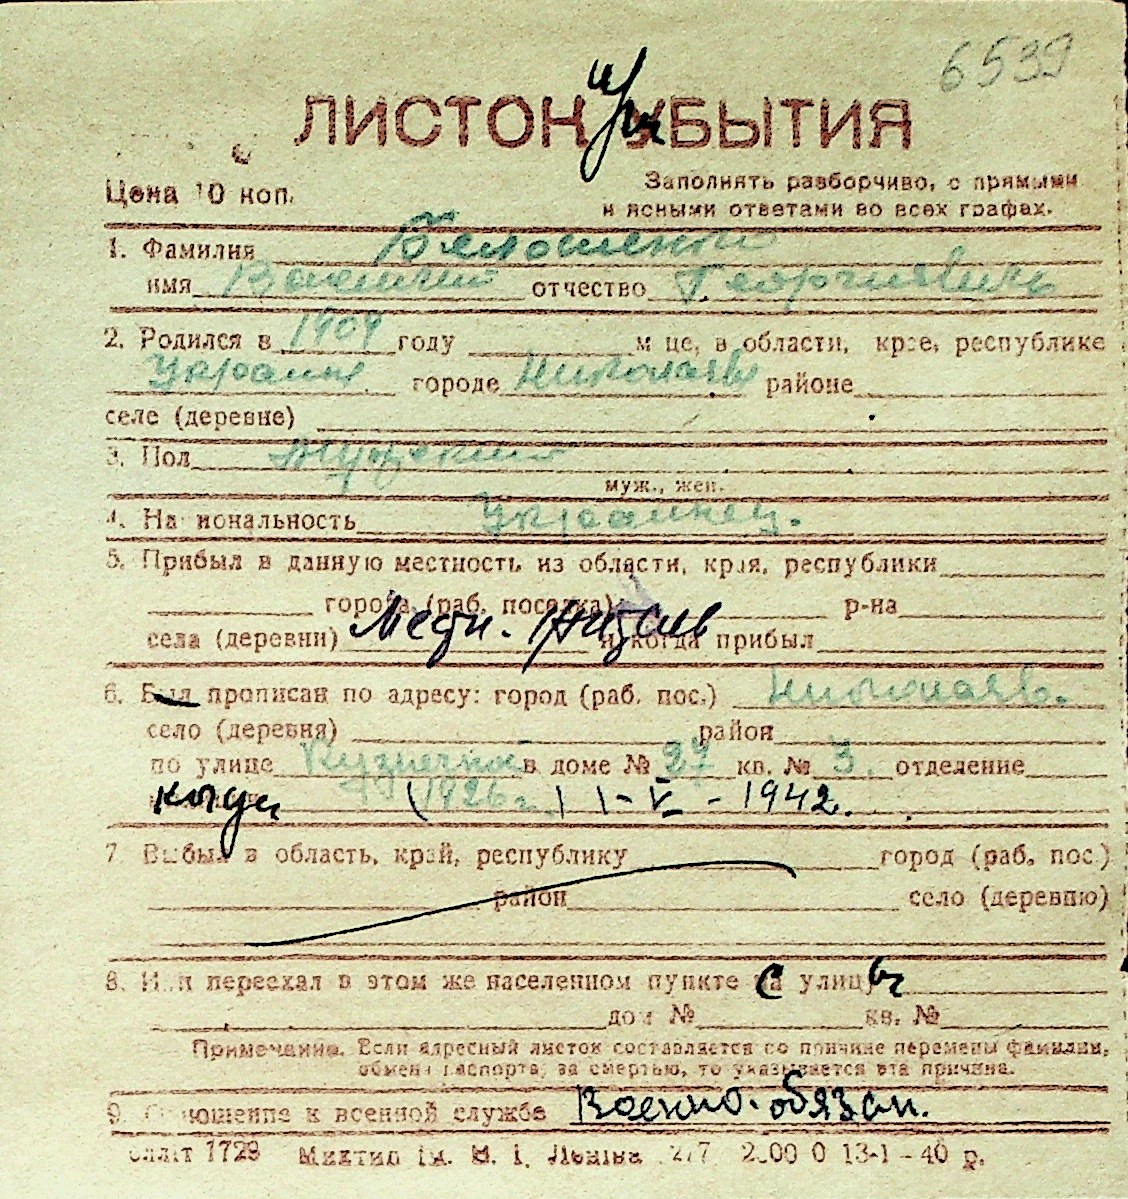 6539
ЛИСТОК при УБЫТИЯ
Цена 10 коп.
Заполнять разборчиво, с прямыми
и ясными ответами во всех графах.
1. Фамилия
имя Василий отчество Георгиевич
2. Родился в 1904 году м-це, в области, крае, республике
Украина городе Николаев районе
селе (деревне)
3. Пол Мужской
муж., жен.
4. Национальность Украинец.
5. Прибыл в данную местность из области, края, республики
города (раб. поселка) р-на
села (деревни) Местн. житель и когда прибыл
6. Был прописан по адресу: город (раб. пос.) Николаев.
село (деревня) район
по улице Кузнечной в доме № 27 кв. № 3, отделение
когда 1926 г. 1-V-1942.
7. Выбыл в область, край, республику город (раб. пос.)
район село (деревню)
8. Или переехал в этом же населенном пункте с улицы
дом № кв. №
Примечание. Если адресный листок составляется по причине перемены фамилии,
обмена паспорта, за смертью, то указывается эта причина.
9. Отношение к военной службе Военно-обязан.
1729 Миктип ім. В. І. Леніна 13-1-40 р.